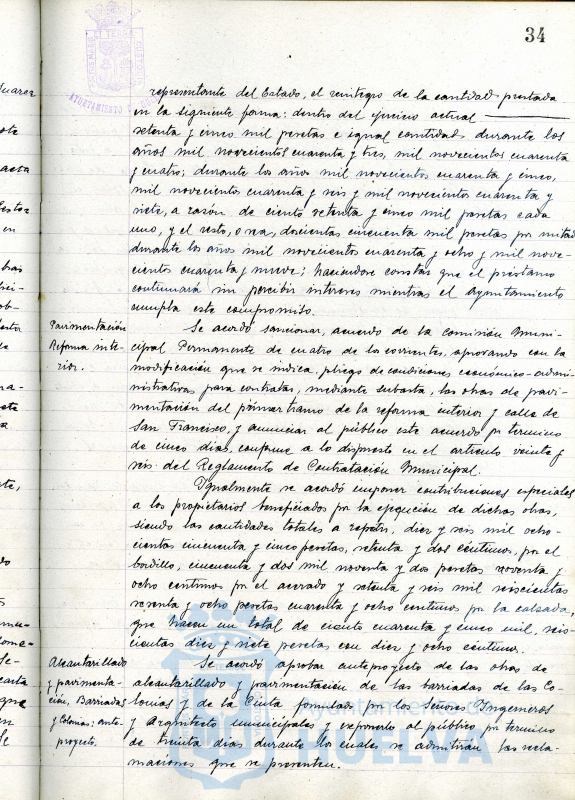 34
AYUNTAMIENTO
representante del Estado, el reintegro de la cantidad prestada
en la siguiente forma: dentro del ejercicio actual
setenta y cinco mil pesetas e igual cantidad durante los
años mil novecientos cuarenta y tres, mil novecientos cuarenta
y cuatro; durante los años mil novecientos cuarenta y cinco,
mil novecientos cuarenta y seis y mil novecientos cuarenta y
siete, a razón de ciento setenta y cinco mil pesetas cada
uno, y el resto, o sea, doscientas cincuenta mil pesetas por mitad
durante los años mil novecientos cuarenta y ocho y mil nove-
cientos cuarenta y nueve; haciéndose constar que el préstamo
continuará sin percibir intereses mientras el Ayuntamiento
cumpla este compromiso.
Pavimentación
Reforma inte-
rior.
Se acordó sancionar, acuerdo de la Comisión Muni-
cipal Permanente de cuatro de los corrientes, aprobando con la
modificación que se indica, pliego de condiciones económico-admi-
nistrativas para contratar, mediante subasta, las obras de pavi-
mentación del primer tramo de la reforma interior y calle de
San Francisco, y anunciar al público este acuerdo por término
de cinco días, conforme a lo dispuesto en el artículo veinte y
seis del Reglamento de Contratación Municipal.
Igualmente se acordó imponer contribuciones especiales
a los propietarios beneficiados por la ejecución de dichas obras,
siendo las cantidades totales a repartir, diez y seis mil ocho-
cientas cincuenta y cinco pesetas, setenta y dos céntimos, por el
bordillo, cincuenta y dos mil noventa y dos pesetas noventa y
ocho céntimos por el acerado y setenta y seis mil seiscientas
sesenta y ocho pesetas cuarenta y ocho céntimos por la calzada;
que hacen un total de ciento cuarenta y cinco mil, seis-
cientas diez y siete pesetas con diez y ocho céntimos.
Alcantarillado
y pavimenta-
ción, Barriadas
y Colonias: ante-
proyecto.
Se acordó aprobar anteproyecto de las obras de
alcantarillado y pavimentación de las barriadas de las Co-
lonias y de la Cinta formulado por los Señores Ingeneros
y Arquitecto municipales y exponerlo al público por término
de treinta días durante los cuales se admitirán las recla-
maciones que se presenten.
HUELVA